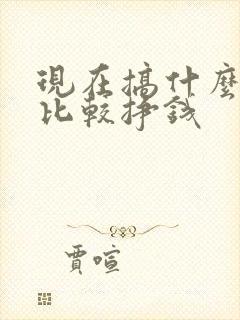 現在搞什麼
比較挣錢
賈喧